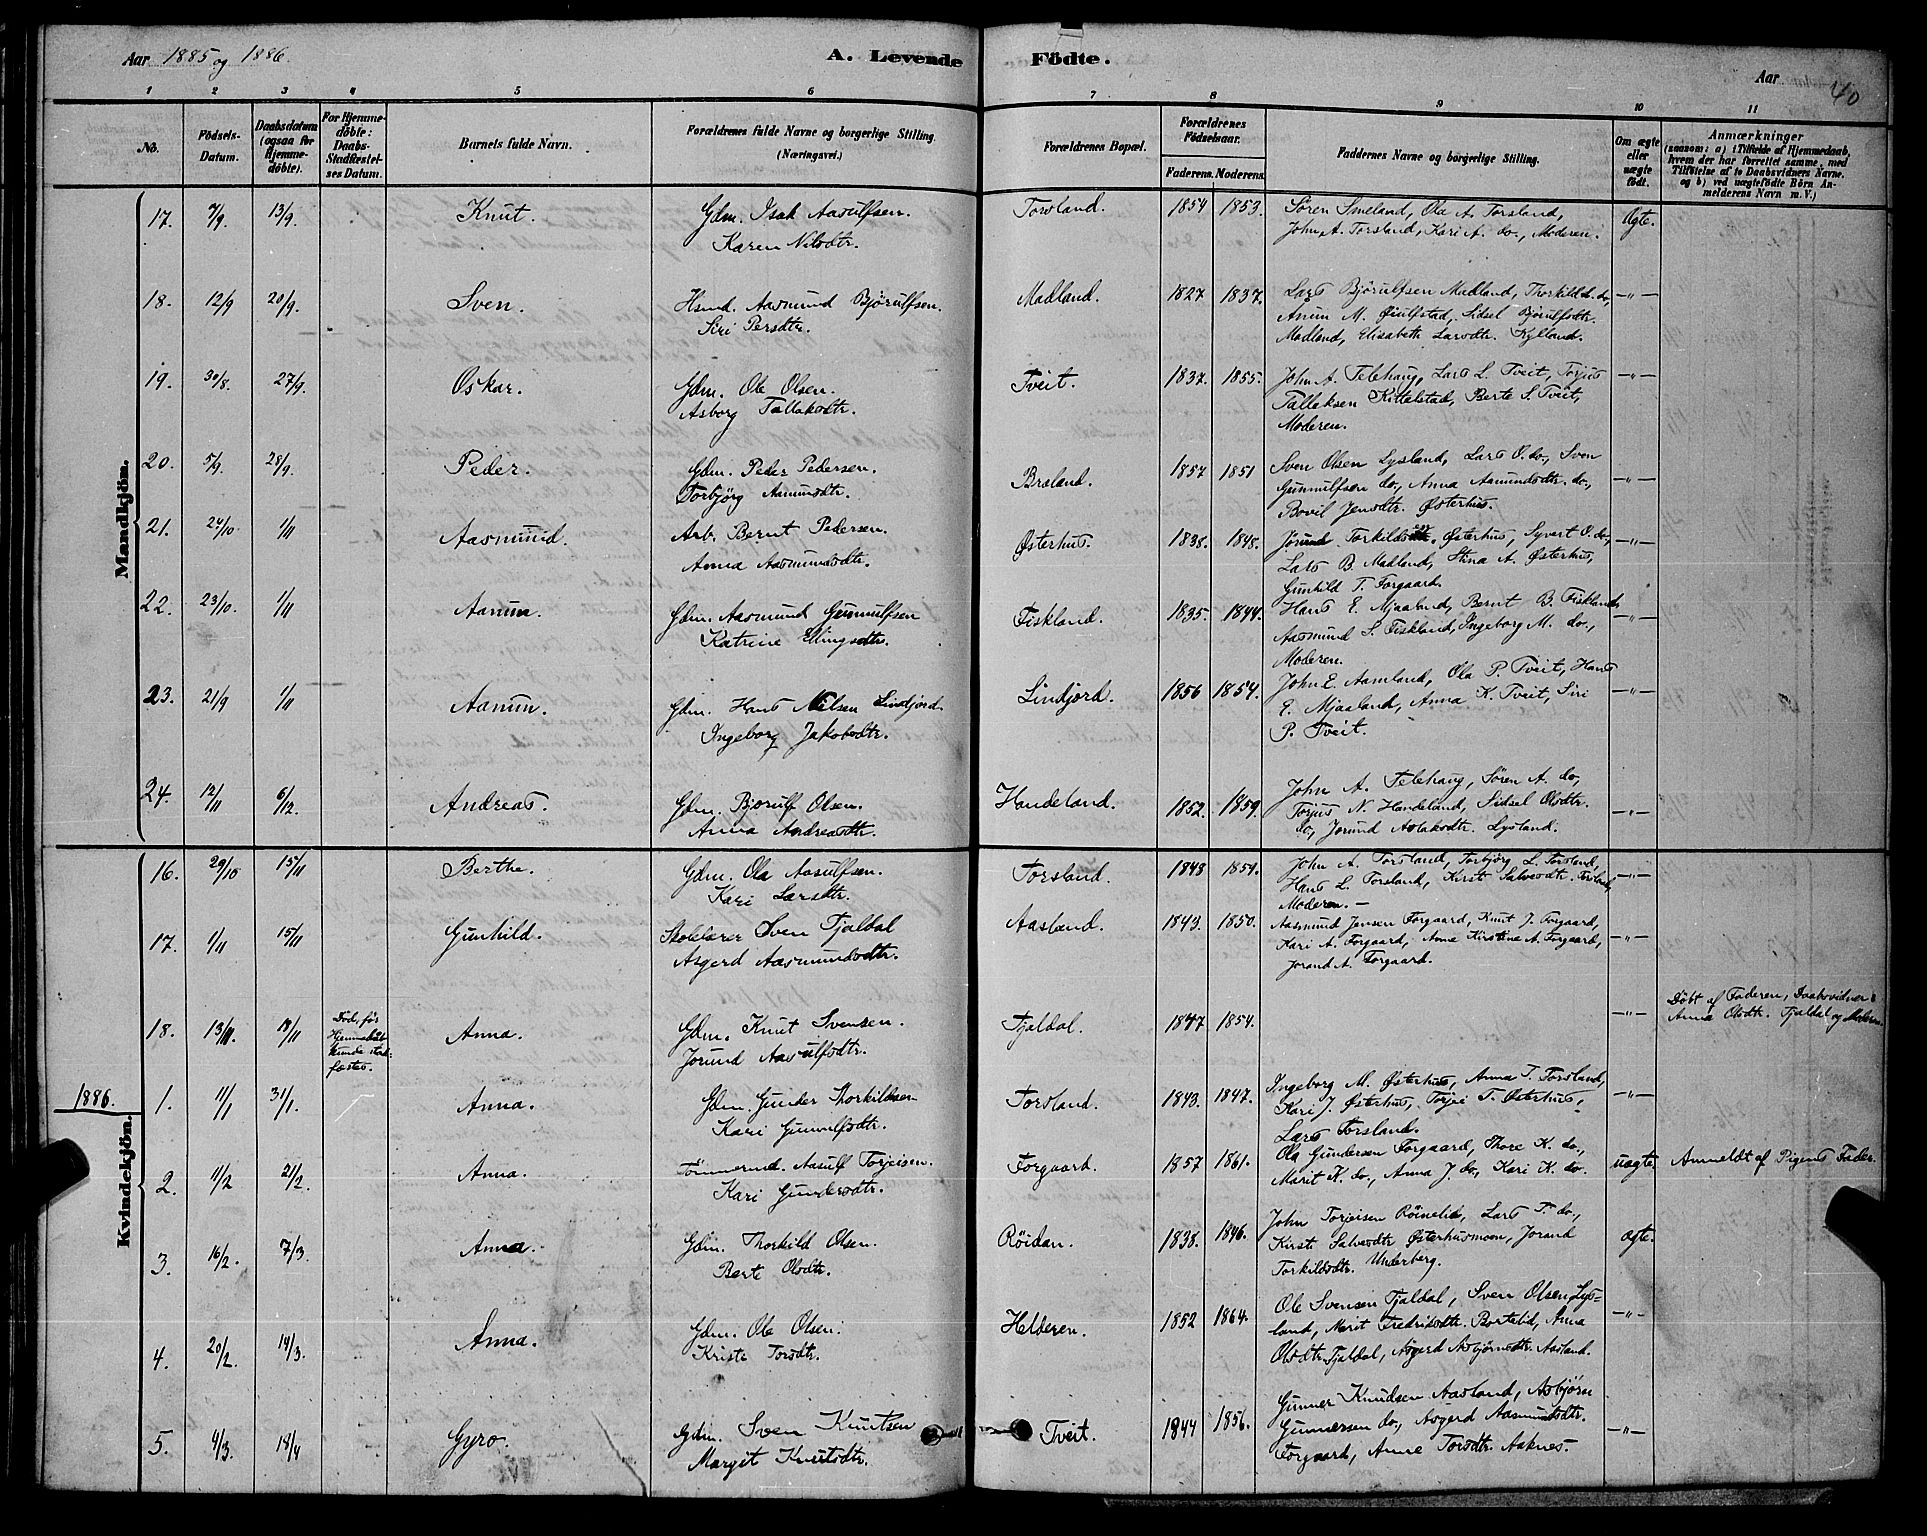 Aar 1885 og 1886. A. Levende Födte. Aar 40
1 2 3 4 5 6 7 8 9 10 11
No.
Födsels-Datum.
Daabsdatum (ogsaa for Hjemmedöbte).
For Hjemmedöbte: Daabs-Stadfæstelses Datum.
Barnets fulde Navn.
Forældrenes fulde Navne og borgerlige Stilling. (Næringsvei.)
Forældrenes Bopæl.
Forældrenes Födselsaar.
Faderens. Moderens.
Faddernes Navne og borgerlige Stilling.
Om ægte eller uægte födt.
Anmærkninger
(saasom: a) i Tilfælde af Hjemmedaab, hvem der har forrettet samme, med Tilföielse af to Daabsvidners Navne. og b) ved uægtefödte Börn Anmelderens Navn m. V.)
Mandkjön.
17. 7/9 13/9. Knut. Gdm. Isak Aasulfsen. Torsland. 1854 1853. Sören Smeland, Ola A. Torsland, Ægte.
Karen Nilsdtr. John A. Torsland, Kari A. do., Moderen.
18. 12/9 20/9. Sven. Hsmd. Aasmund Bjørulfsen. Madland. 1827 1837. Lars Bjørulfsen Madland, Thorkild L. do, —"—
Siri Persdtr. Anun M. Øiulfstad, Sidsel Bjørulfsdtr.
Madland, Elisabeth Larsdtr. Kylland.
19. 30/8. 27/9. Oskar. Gdm. Ole Olsen. Tveit. 1837. 1855. John A. Telehaug, Lars L. Tveit, Torjus —"—
Asborg Tallaksdtr. Tallaksen Kittelstad, Berte S. Tveit,
Moderen.
20. 5/9. 28/9. Peder. Gdm. Peder Pedersen. Braland. 1857 1851 Sven Olsen Lysland, Lars O. do., Sven —"—
Torbjørg Aamundsdtr. Gunnulfsen do, Anna Aamundsdtr. do.,
Bovil Jensdtr. Østerhus.
21. 24/10. 1/11 Aasmund. Arb. Bernt Pedersen. Østerhus. 1838. 1848. Jorund Torkilds Østerhus, Syvert O. do, —"—
Anna Aasmundsdtr. Lars B. Madland, Stina A. Østerhus,
Gunhild T. Forgaard.
22. 23/10. 1/11 Aanun. Gdm. Aasmund Gunnulfsen Fiskland. 1835. 1844. Hans E. Mjaaland, Bernt B. Fiskland, —"—
Katrine Ellingsdtr. Aasmund S. Fiskland, Ingeborg M. do.,
Moderen.
23. 21/9 1/11 Aanun. Gdm. Hans Nilsen Lindjord. Lindjord. 1856 1854. John E. Aamland, Ola P. Tveit, Hans —"—
Ingeborg Jakobsdtr. E. Mjaaland, Anna K. Tveit, Siri
P. Tveit.
24. 12/11 6/12. Andreas. Gdm. Bjorulf Olsen. Handeland. 1852. 1859. John A. Telehaug, Søren A. do, —"—
Anna Andreasdtr. Torjus N. Handeland, Sidsel Olsdtr.
do, Jorund Aslaksdtr. Lysland.
Kvindekjön.
16. 29/10 15/11 Berthe. Gdm. Ola Aasulfsen. Torsland. 1848 1859. John A. Torsland, Torbjørg L. Torsland, —"—
Kari Larsdtr. Hans L. Torsland, Kirsti Salvesdtr. Torsland,
Moderen. —
17. 1/11 15/11 Gunhild. Skolelærer Sven Tjaldal Aasland. 1843. 1850. Aasmund Jensen Forgaard, Knut J. Forgaard, —"—
Asgerd Aasmundsdtr. Kari A. Forgaard, Anne Kirstine A. Forgaard,
Jorand A. Forgaard.
18. 13/11. 18/11 Död, för Hjemmedaab kunde stadfæstes. Anna. Gdm. Knut Svensen. Tjaldal. 1847 1854. —"— Døbt af Faderen, Daabsvidner:
Jorund Aasulfsdtr. Anna Olsdtr. Tjaldal og Moderen.
1886.
1. 11/1 31/1. Anna. Gdm. Gunder Thorkildsen Torsland. 1843. 1847. Ingeborg M. Østerhus, Anna T. Torsland, —"—
Kari Gunnulfsdtr. Kari J. Østerhus, Torjei T. Østerhus,
Lars Torsland.
2. 11/2 21/2. Anna. Tømmermd. Aasulf Torjeisen. Forgaard. 1857 1861. Ola Gundersen Forgaard, Thore K. do., uægte. Anmeldt af Pigens Fader.
Kari Gundersdtr. Marit K. do., Anna J. do, Kari K. do.
3. 16/2. 7/3. Anna. Gdm. Thorkild Olsen. Röidan. 1838. 1846. John Torjeisen Röinelid, Lars T. do., ægte.
Berte Olsdtr. Kirsti Salvesdtr Østerhusmoen, Jorand
Torkildsdtr. Underberg.
4. 20/2. 14/3. Anna. Gdm. Ole Olsen. Helderen. 1852 1864. Ole Svensen Tjaldal, Sven Olsen Lys- —"—
Kristi Torsdtr. land, Marit Fredriksdtr. Bortelid, Anna
Olsdtr. Tjaldal, Asgerd Asbjørnsdtr. Aasland.
5. 4/3. 18/4 Gyro. Gdm. Sven Knutsen Tveit. 1844 1856. Gunner Knudsen Aasland, Asbjørn —"—
Margit Knutsdtr. Gunnersen do., Asgerd Aasmundsdtr.
Forgaard, Anne Torsdtr. Aaknes.